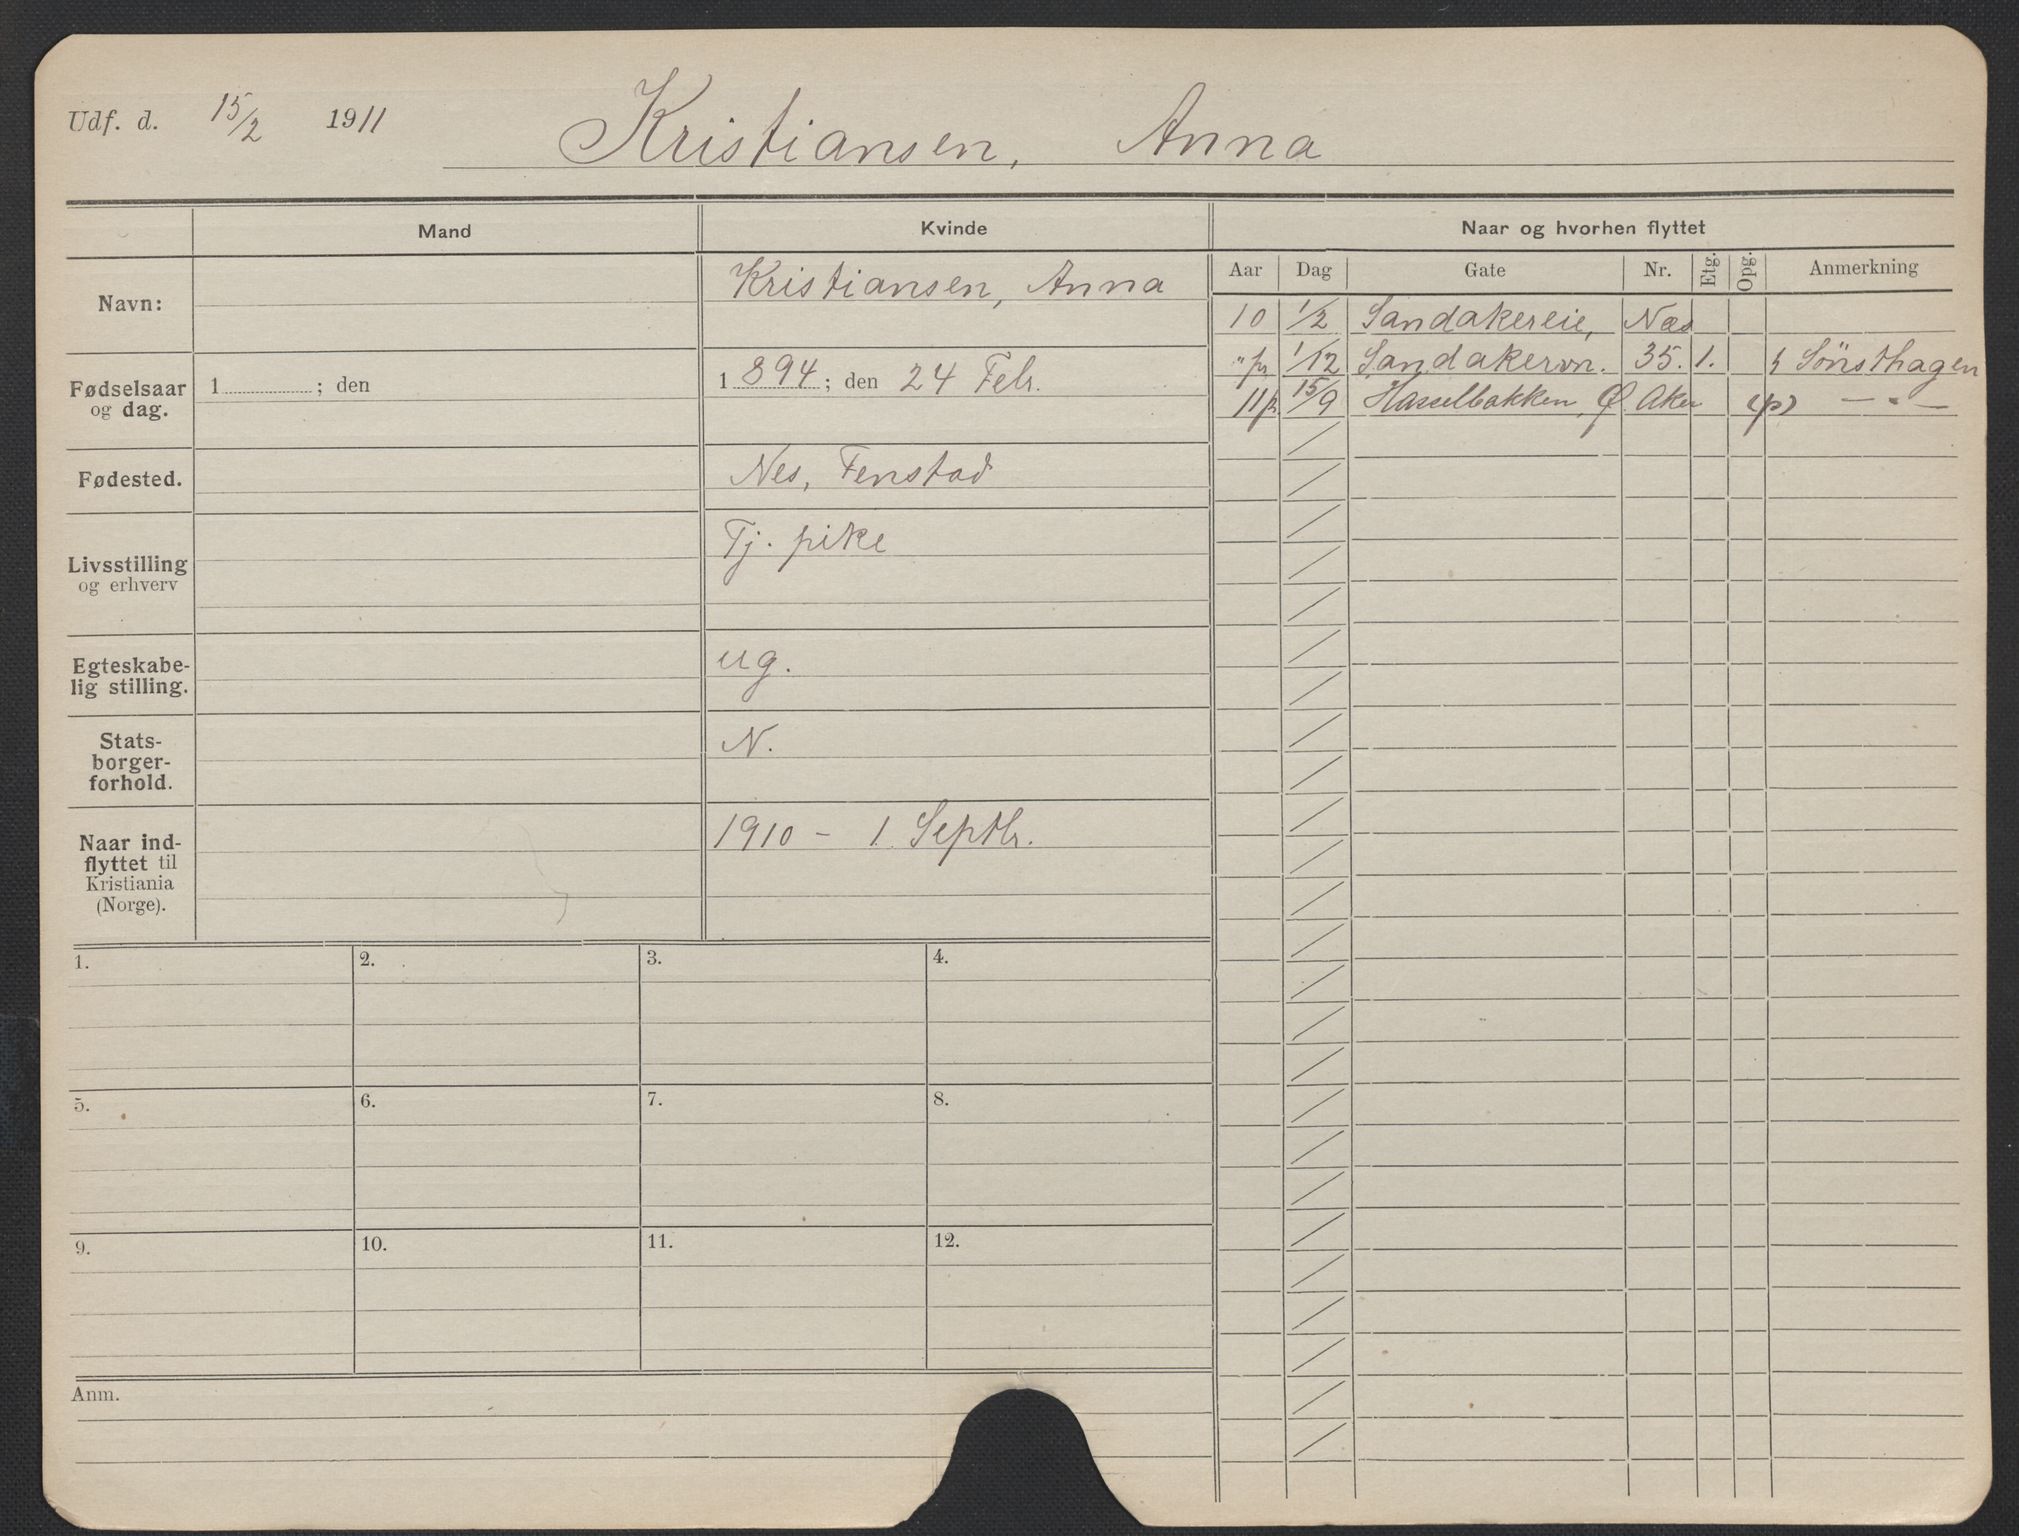 Udf. d. 15/2 1911 Kristiansen, Anna
Mand Kvinde Naar og hvorhen flyttet
Aar Dag Gate Nr. Etg. Opg. Anmerkning
Navn: Kristiansen, Anna
10 1/2 Sandakereie, Næs
"pr 1/12 Sandakervn. 35. 1. Sönsthagen
11pr 15/9 Hasselbakken, Ø. Aker (p) — " —
Fødselsaar
og dag.
1 ; den 1 894 ; den 24 Febr.
Fødested. Nes, Fenstad
Livsstilling
og erhverv
Tj. pike
Egteskabe-
lig stilling.
ug.
Stats-
borger-
forhold.
N.
Naar ind-
flyttet til
Kristiania
(Norge).
1910 - 1. Septbr.
1. 2. 3. 4.
5. 6. 7. 8.
9. 10. 11. 12.
Anm.